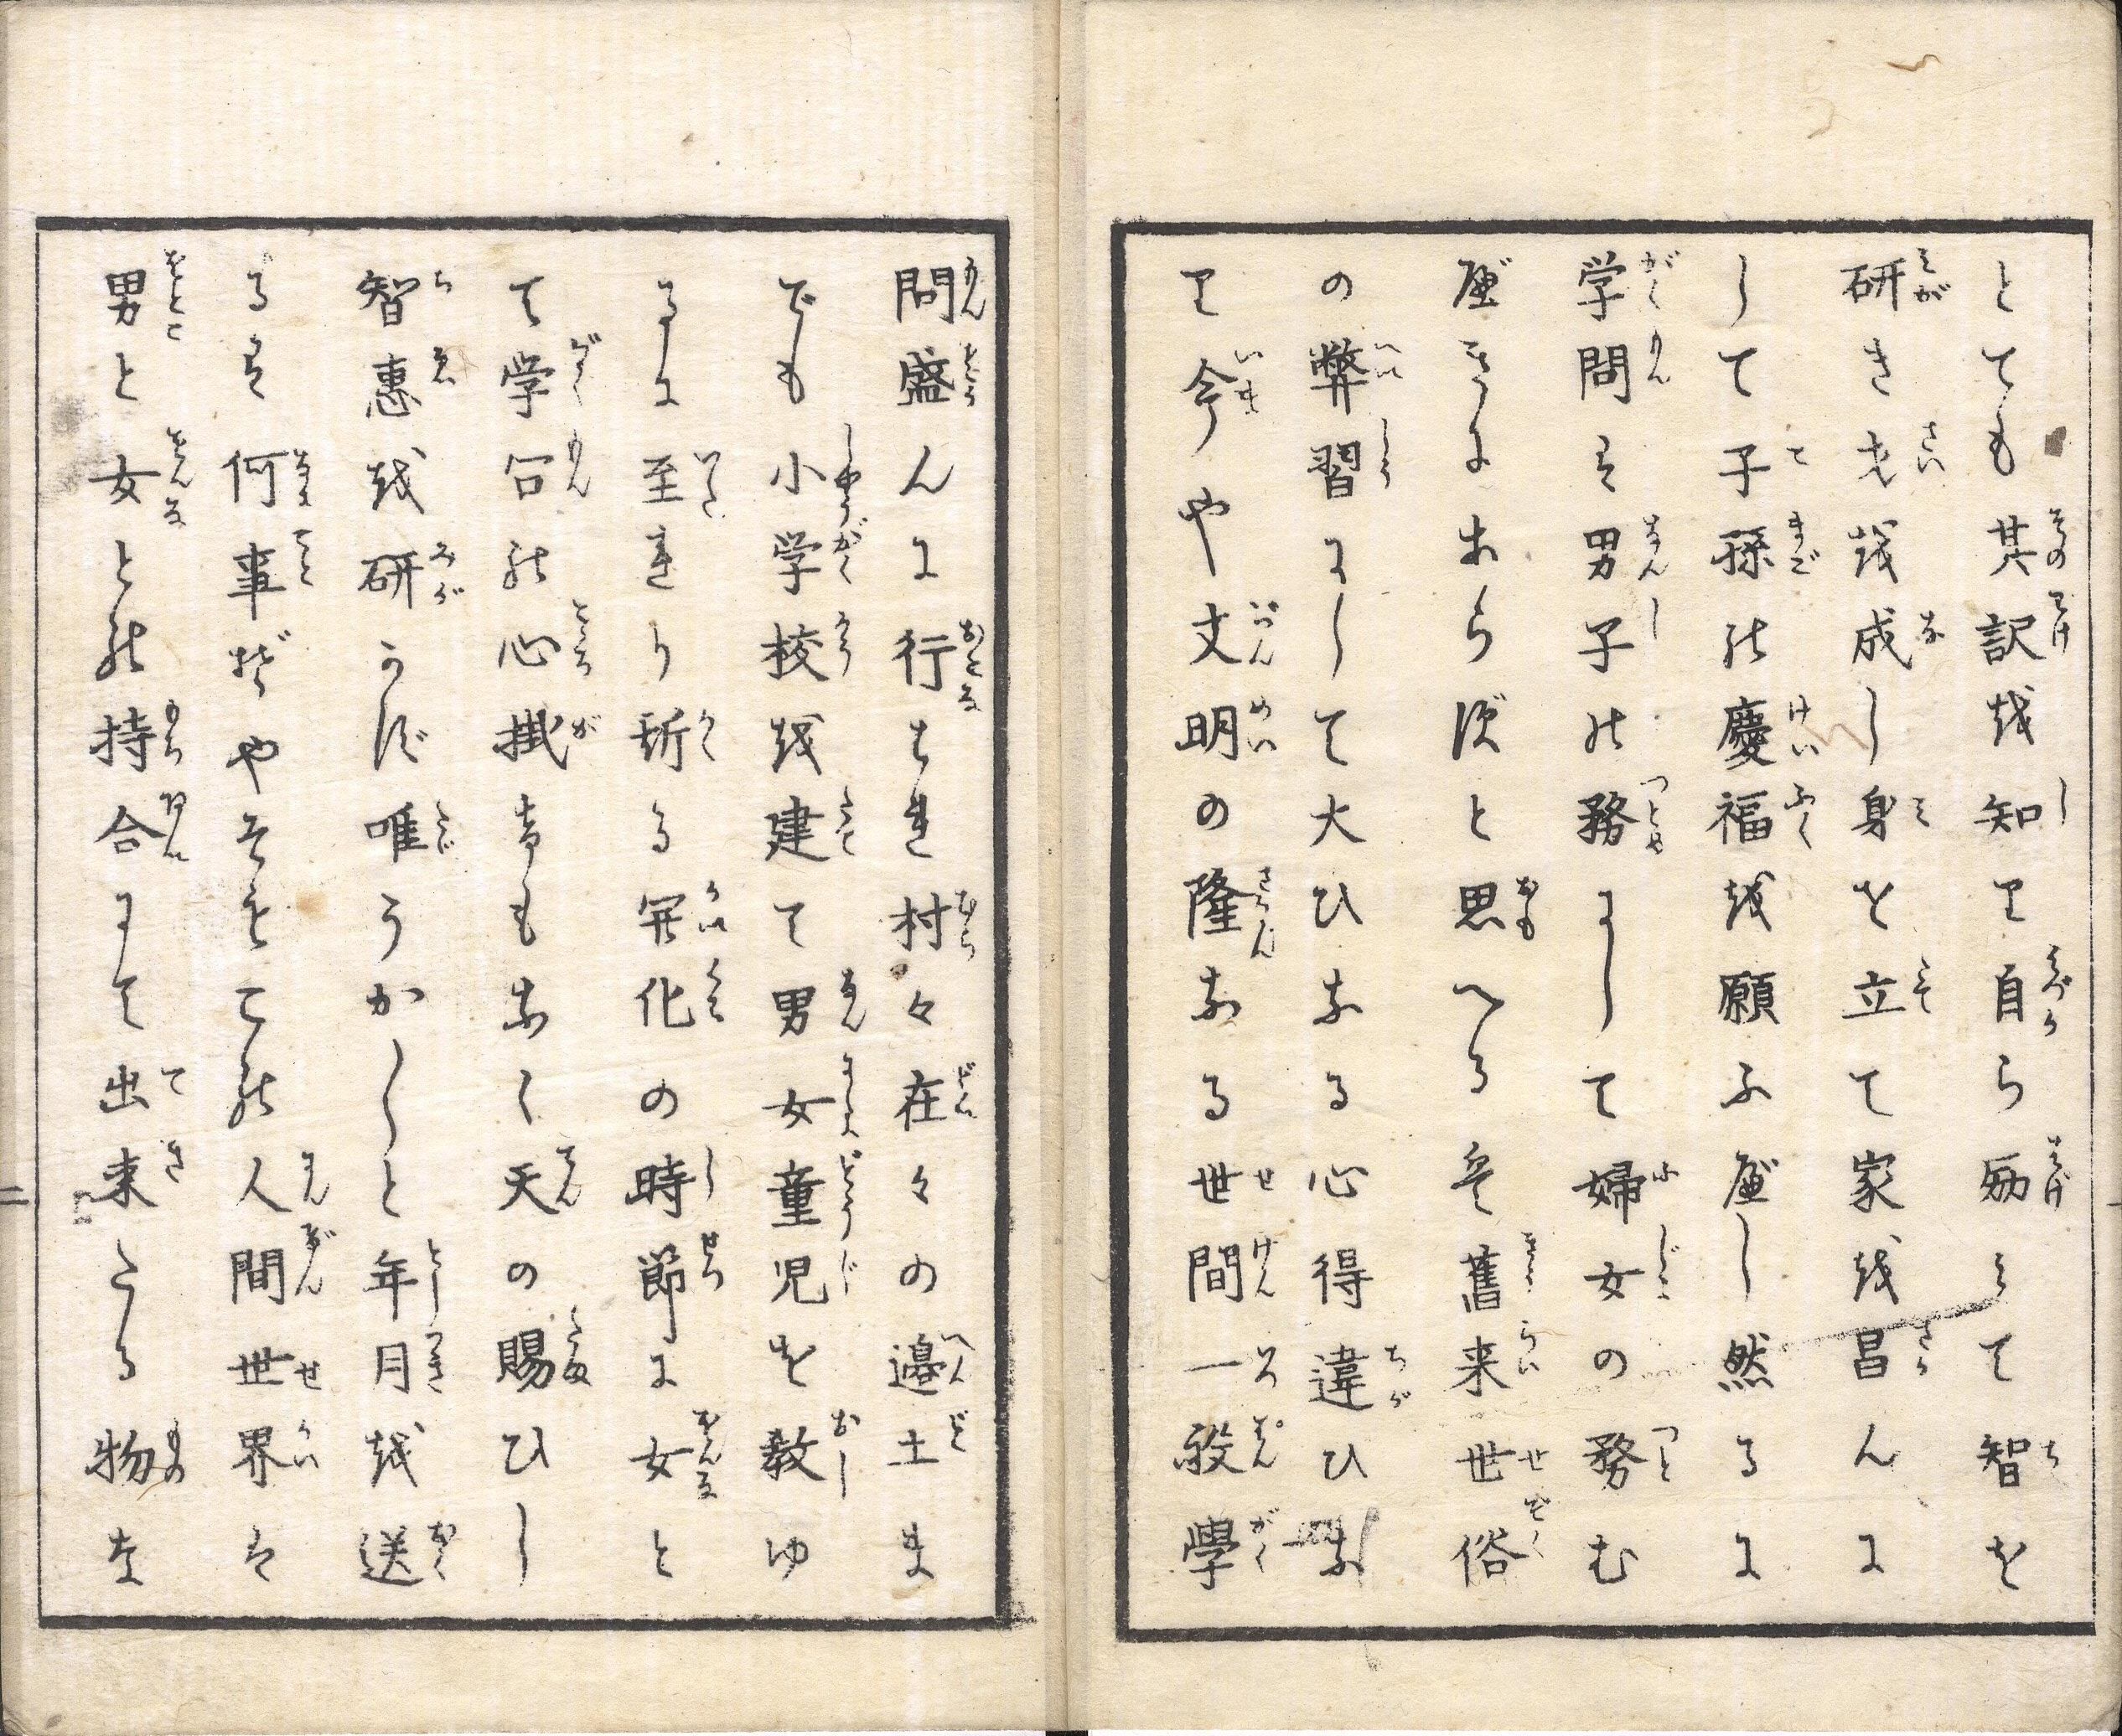 とても其訳を知り自ら励みて智を
研き才を成し身を立て家を昌んに
して子孫の慶福を願ふ可し然るに
学問は男子の務にして婦女の務む
可きにあらずと思へるは舊来世俗
の弊習にして大ひなる心得違ひな
り今や文明の隆なる世間一般學
問盛んに行はれ村々在々の邉土ま
でも小学校を建て男女童児を教ゆ
るに至れり斯る開化の時節に女と
て学問の心掛けもなく天の賜ひし
智恵を研かず唯うか〳〵と年月を送
るは何事ぞやそもこの人間世界は
男と女との持合にて出来たる物な
二